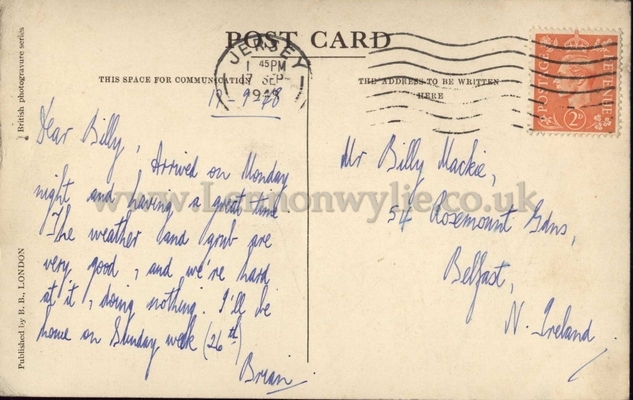 POST CARD
JERSEY
1 45PM
17 SEP
1948
THIS SPACE FOR COMMUNICATION
THE ADDRESS TO BE WRITTEN
HERE
POSTAGE
REVENUE
2D
Dear Billy, Arrived on Monday
night and having a great time.
The weather and grub are
very good, and we're hard
at it, doing nothing. I'll be
home on Sunday week (26th)
Brian
Mr Billy Mackie,
54 Rosemount Gdns,
Belfast,
N. Ireland
www.Lennonwylie.co.uk
A British photogravure series
Published by B. B., LONDON